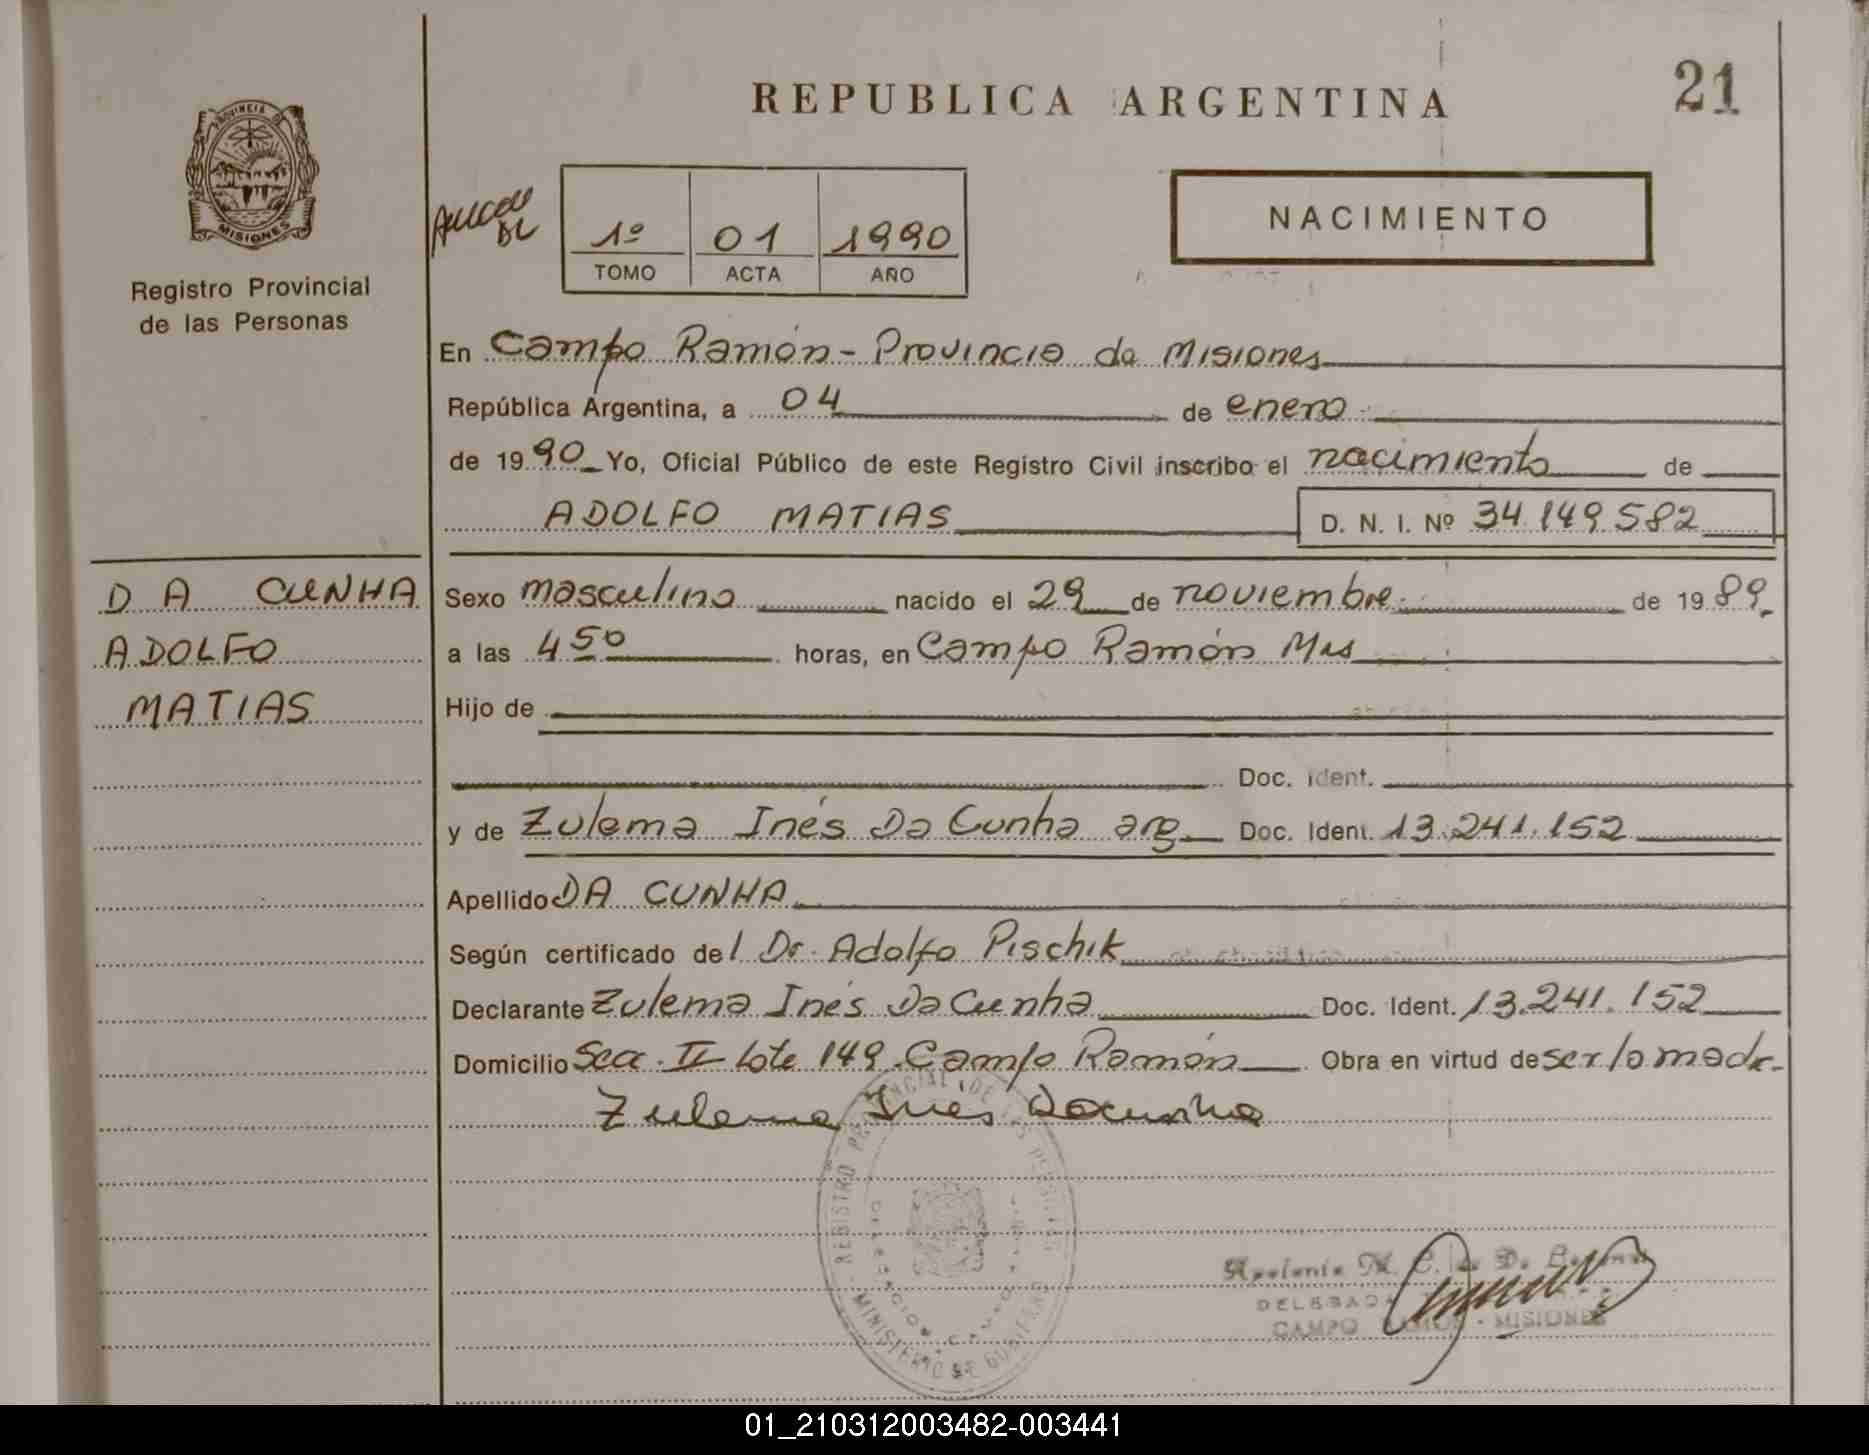 REPUBLICA ARGENTINA
21
PROVINCIA DE
MISIONES
Registro Provincial
de las Personas
1º 01 1990
TOMO ACTA AÑO
NACIMIENTO
En Campo Ramón - Provincia de Misiones
República Argentina, a 04 de enero
de 1990 Yo, Oficial Público de este Registro Civil inscribo el nacimiento de
ADOLFO MATIAS D. N. I. Nº 34.149.582
DA CUNHA
ADOLFO
MATIAS
Sexo masculino nacido el 29 de noviembre de 1989
a las 4 50 horas, en Campo Ramón Mis
Hijo de
Doc. Ident.
y de Zulema Inés Da Cunha arg Doc. Ident. 13.241.152
Apellido DA CUNHA
Según certificado del Dr. Adolfo Pischik
Declarante Zulema Inés Da Cunha Doc. Ident. 13.241.152
Domicilio Secc. II Lote 149 Campo Ramón Obra en virtud de ser la madre
Zulema Inés Dacunha
REGISTRO PROVINCIAL DE LAS PERSONAS
MINISTERIO DE GOBIERNO
DELEGADA
CAMPO RAMON - MISIONES
01_210312003482-003441